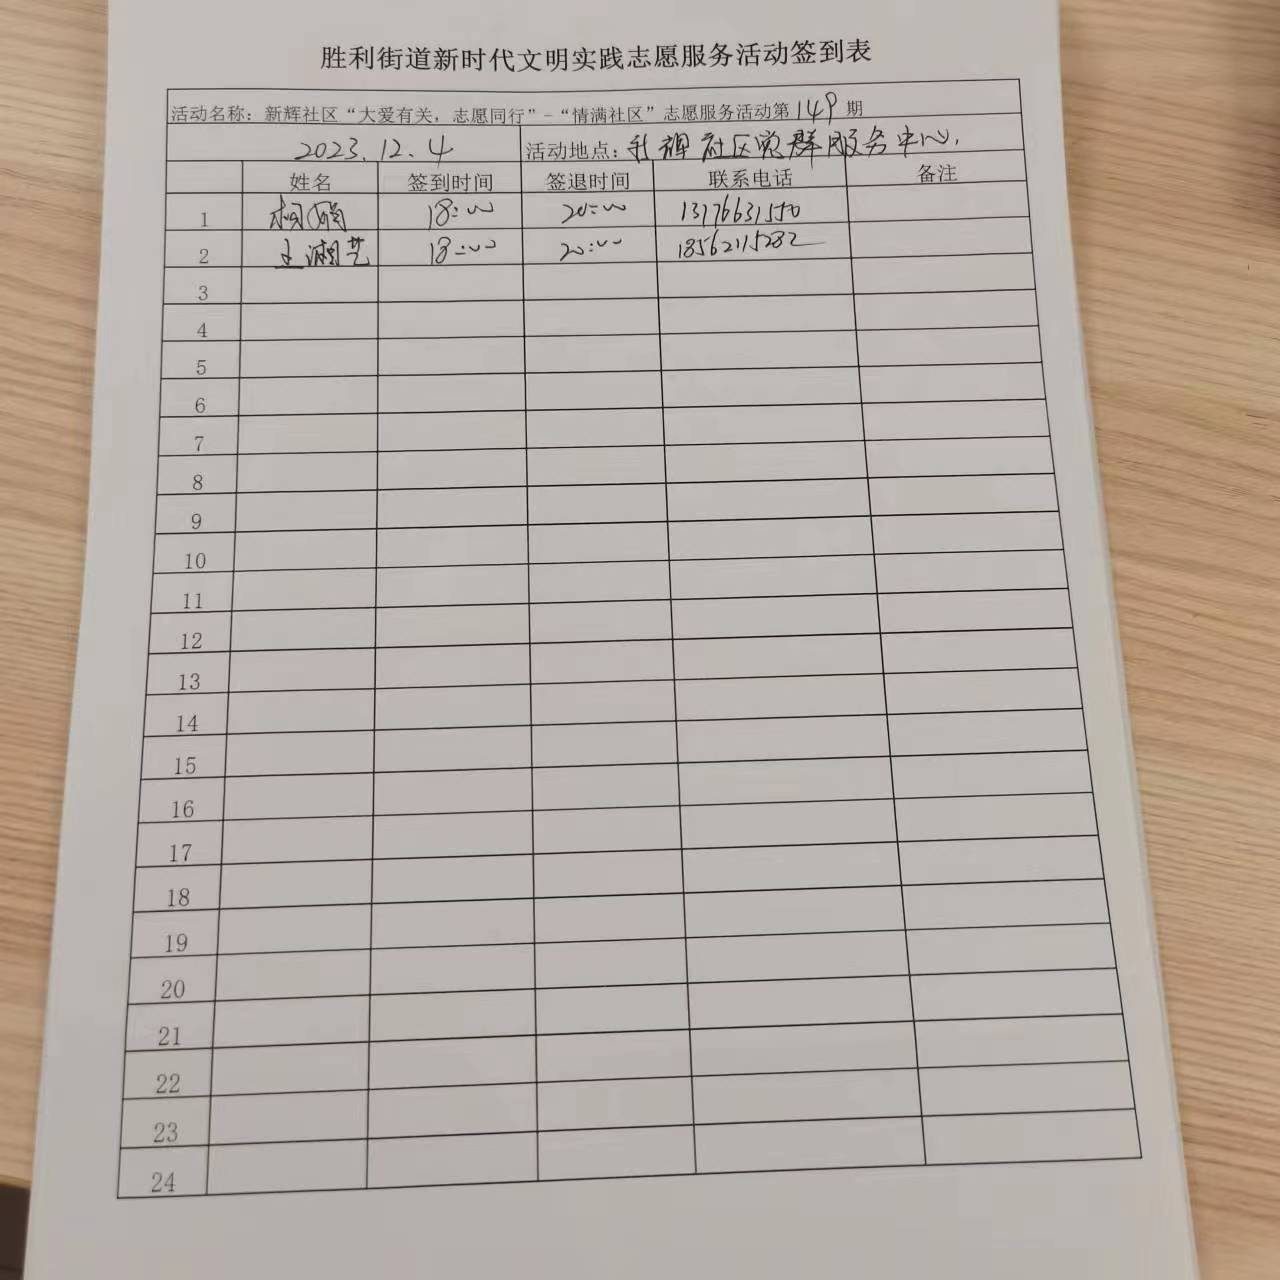 胜利街道新时代文明实践志愿服务活动签到表
活动名称：新辉社区“大爱有关，志愿同行”-“情满社区”志愿服务活动第149期
2023.12.4 活动地点：新辉社区党群服务中心.
姓名 签到时间 签退时间 联系电话 备注
1 18:00 20:00 13176631550
2 王湘艺 18:00 20:00 18562115282
3
4
5
6
7
8
9
10
11
12
13
14
15
16
17
18
19
20
21
22
23
24